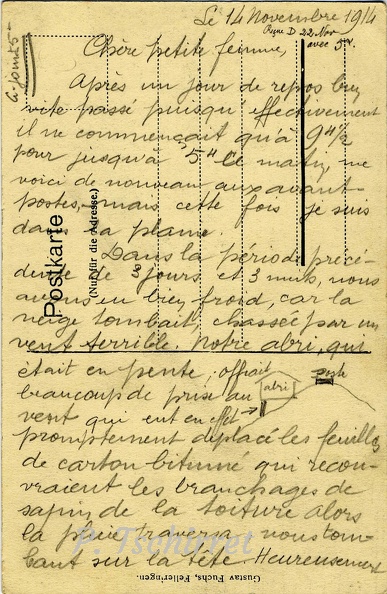 Le 14 Novembre 1914
Reçue D 22 Nov
avec 5 fr.
6 jours
Chère petite femme,
Après un jour de repos bien
vite passé puisqu'effectivement
il ne commençait qu'à 9H 1/2
pour jusqu'à 5H le matin, me
voici de nouveau aux avant-
postes, mais cette fois je suis
dans la plaine.
Dans la période précé-
dente de 4 jours et 3 nuits, nous
avons eu bien froid, car la
neige tombait, chassée par un
vent terrible. Notre abri, qui
était en pente, offrait
beaucoup de prise au
vent qui eut en effet
promptement déplacé les feuilles
de carton bitumé qui recou-
vraient les branchages de
sapin de la toiture alors
la pluie traversa, nous tom-
bant sur la tête. Heureusement
abri
poste
Postkarte
(Nur für die Adresse.)
Gustav Fuchs, Felleringen.
P. Tschirret